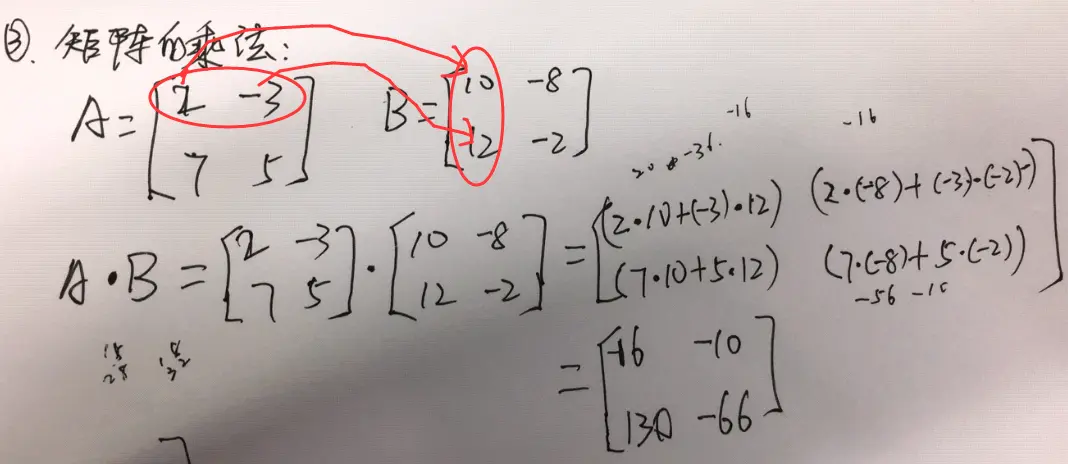 ③. 矩阵的乘法:
A = [2 -3; 7 5] B = [10 -8; 12 -2]
20 -36 -16 -16
A·B = [2 -3; 7 5] · [10 -8; 12 -2] = [(2·10+(-3)·12) (2·(-8)+(-3)·(-2)); (7·10+5·12) (7·(-8)+5·(-2))]
-56 -10
= [-16 -10; 130 -66]